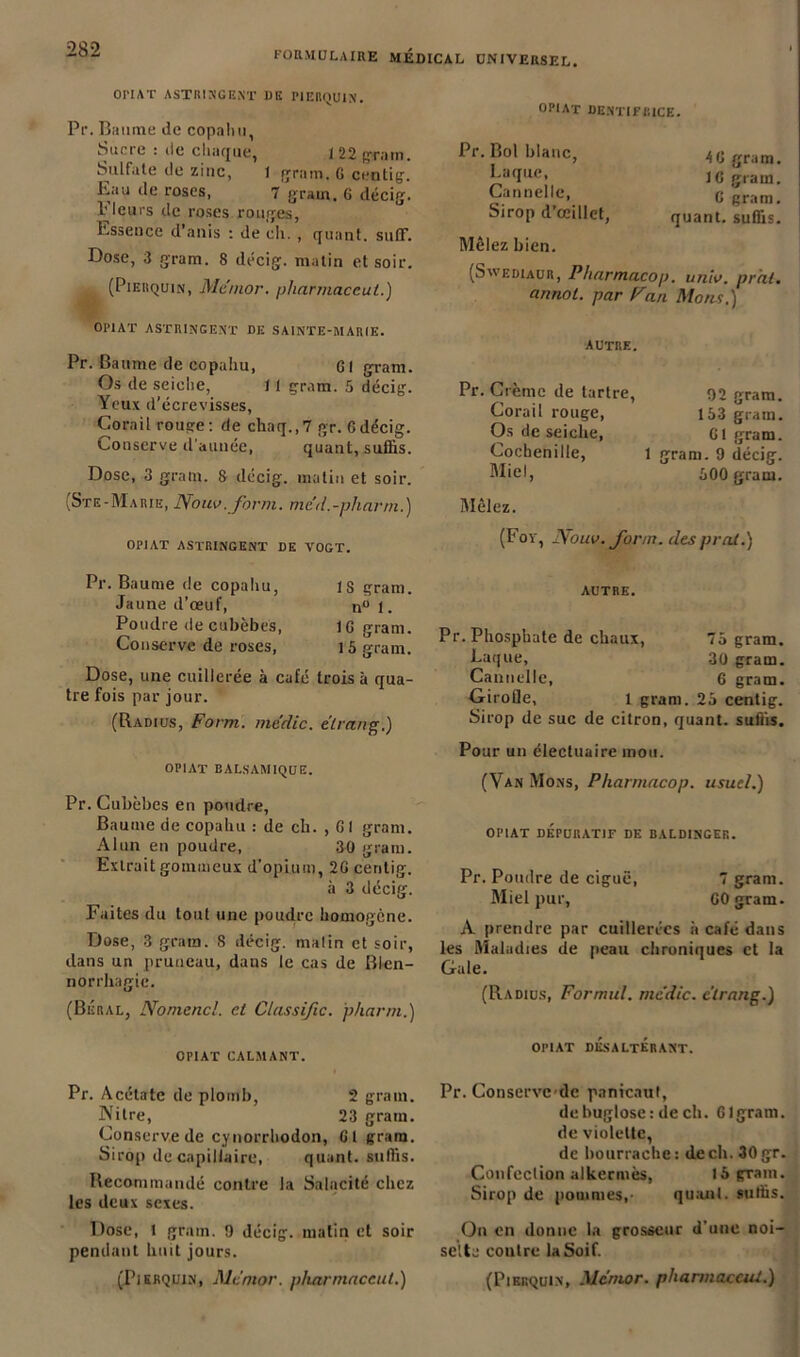 282
FORMULAIRE MÉDICAL UNIVERSEL.
OPIAT ASTRINGENT DE PIERQUIN.
Pr. Baume de copahu,
Sucre : de chaque, 122 gram.
Sulfate de zinc, 1 gram. 6 centig.
Eau de roses, 7 gram. 6 décig.
Fleurs de roses rouges,
Essence d'anis : de ch. , quant. suff.
Dose, 3 gram. 8 décig. matin et soir.
(PIERQUIN, Mémor. pharmaceut.)
OPIAT ASTRINGENT DE SAINTE-MARIE.
Pr. Baume de copahu, 61 gram.
Os de seiche, 11 gram. 5 décig.
Yeux d'écrevisses,
Corail rouge : de chaq.,7 gr. 6 décig.
Conserve d'aunée, quant, suffis.
Dose, 3 gram. 8 décig. matin et soir.
(STE-MARIE, Nouv. form. méd.-pharm.)
OPIAT ASTRINGENT DE VOGT.
Pr. Baume de copahu, 18 gram.
Jaune d'œuf, n° 1.
Poudre de cubèbes, 16 gram.
Conserve de roses, 15 gram.
Dose, une cuillerée à café trois à qua-
tre fois par jour.
(RADIUS, Form. médic. étrang.)
OPIAT BALSAMIQUE.
Pr. Cubèbes en poudre,
Baume de copahu : de ch. , 61 gram.
Alun en poudre, 30 gram.
Extrait gommeux d'opium, 26 centig.
à 3 décig.
Faites du tout une poudre homogène.
Dose, 3 gram. 8 décig. matin et soir,
dans un pruneau, dans le cas de Blen-
norrhagie.
(BÉRAL, Nomencl. et Classific. pharm.)
OPIAT CALMANT.
Pr. Acétate de plomb, 2 gram.
Nitre, 23 gram.
Conserve de cynorrhodon, 61 gram.
Sirop de capillaire, quant. suffis.
Recommandé contre la Salacité chez
les deux sexes.
Dose, 1 gram. 9 décig. matin et soir
pendant huit jours.
(PIERQUIN, Mémor. pharmaceut.)
OPIAT DENTIFRICE.
Pr. Bol blanc, 46 gram.
Laque, 16 gram.
Cannelle, 6 gram.
Sirop d'œillet, quant. suffis.
Mêlez bien.
(SWEDIAUR, Pharmacop. univ. prat.
annot. par Van Mons.)
AUTRE.
Pr. Crème de tartre, 92 gram.
Corail rouge, 153 gram.
Os de seiche, 61 gram.
Cochenille, 1 gram. 9 décig.
Miel, 500 gram.
Mêlez.
(FOY, Nouv. form. des prat.)
AUTRE.
Pr. Phosphate de chaux, 75 gram.
Laque, 30 gram.
Cannelle, 6 gram.
Girofle, 1 gram. 25 centig.
Sirop de suc de citron, quant. suffis.
Pour un électuaire mou.
(VAN MONS, Pharmacop. usuel.)
OPIAT DÉPURATIF DE BALDINGER.
Pr. Poudre de ciguë, 7 gram.
Miel pur, 60 gram.
A prendre par cuillerées à café dans
les Maladies de peau chroniques et la
Gale.
(RADIUS, Formul. médic. étrang.)
OPIAT DÉSALTÉRANT.
Pr. Conserve de panicaut,
de buglose : de ch. 61 gram.
de violette,
de bourrache : de ch. 30 gr.
Confection alkermès, 15 gram.
Sirop de pommes, quant. suffis.
On en donne la grosseur d'une noi-
sette contre la Soif.
(PIERQUIN, Mémor. pharmaceut.)